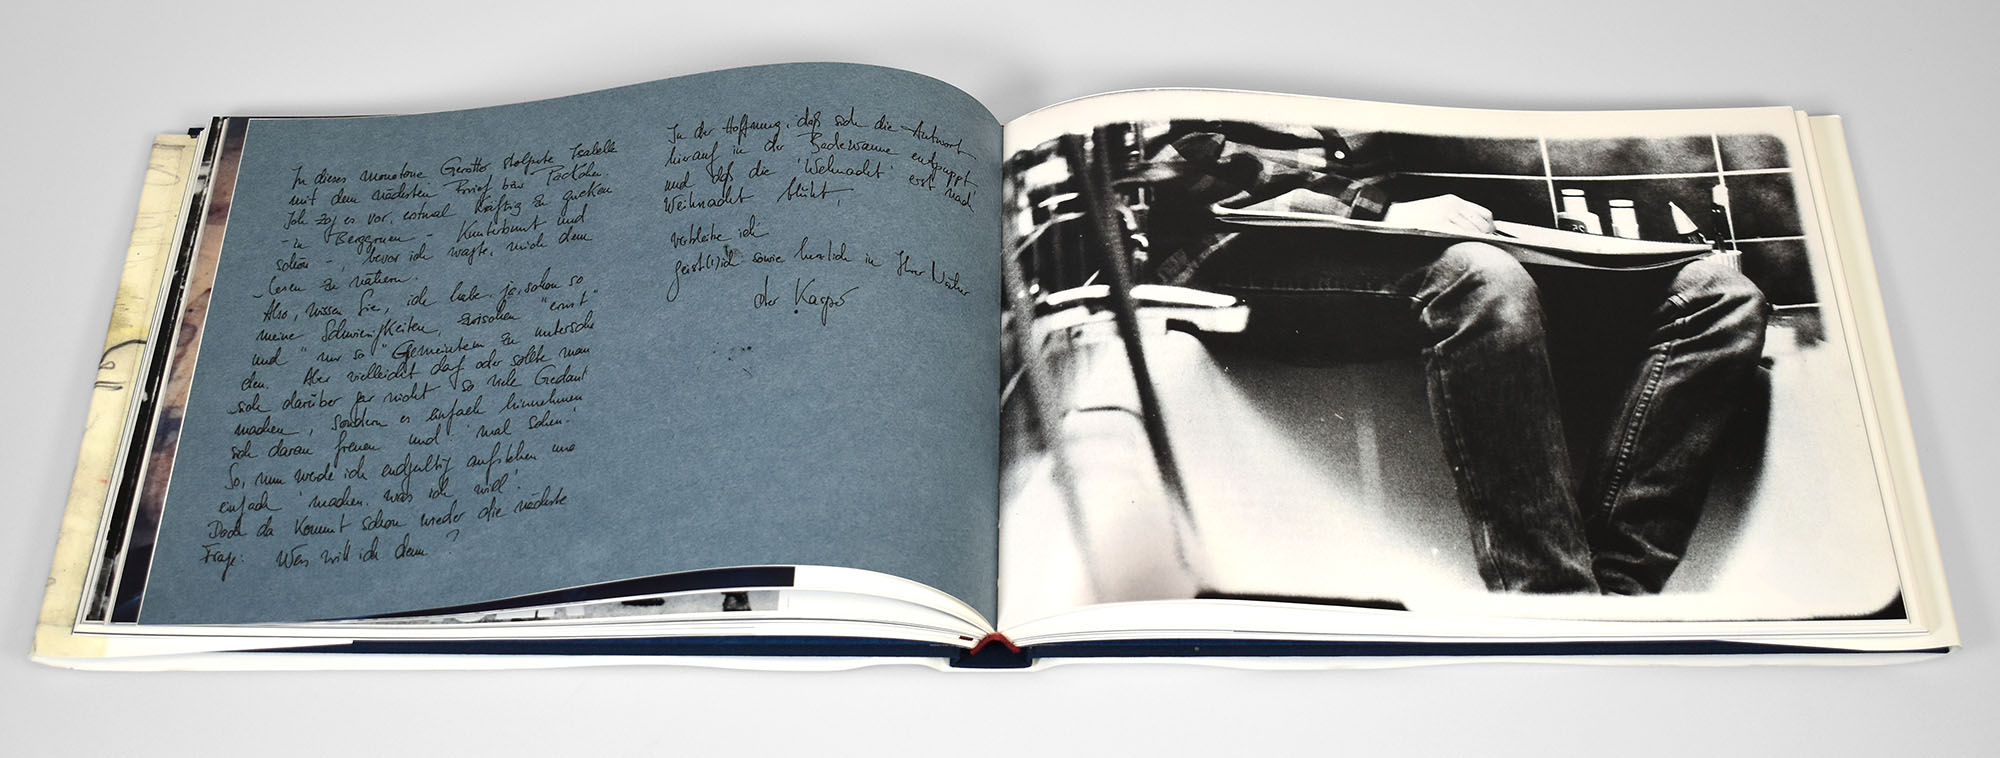 In dieses monotone Gerotto stolperte Isabelle
mit dem nächsten Brief bzw. Päckchen.
Ich zog es vor, erstmal kräftig zu gucken
- in Berggruen - Kunterbunt und
schön -, bevor ich wagte, mich dem
Lesen zu nähern.
Also, wissen Sie, ich habe ja schon so
meine Schwierigkeiten, zwischen "ernst"
und "nur so" Gemeintem zu untersche
den. Aber vielleicht darf oder sollte man
sich darüber gar nicht so viele Gedank
machen, sondern es einfach hinnehmen
sich daran freuen und 'mal sehen'.
So, nun werde ich endgültig aufstehen und
einfach 'machen, was ich will'.
Doch da kommt schon wieder die nächste
Frage: Was will ich denn?
In der Hoffnung, daß sich die Antwort
hierauf in der Badewanne entpuppt
und daß die 'Weihnacht' erst nach
Weihnacht blüht,
verbleibe ich
geist(l)ich sowie herzlich in Ihrer Nähe
der Kaspar